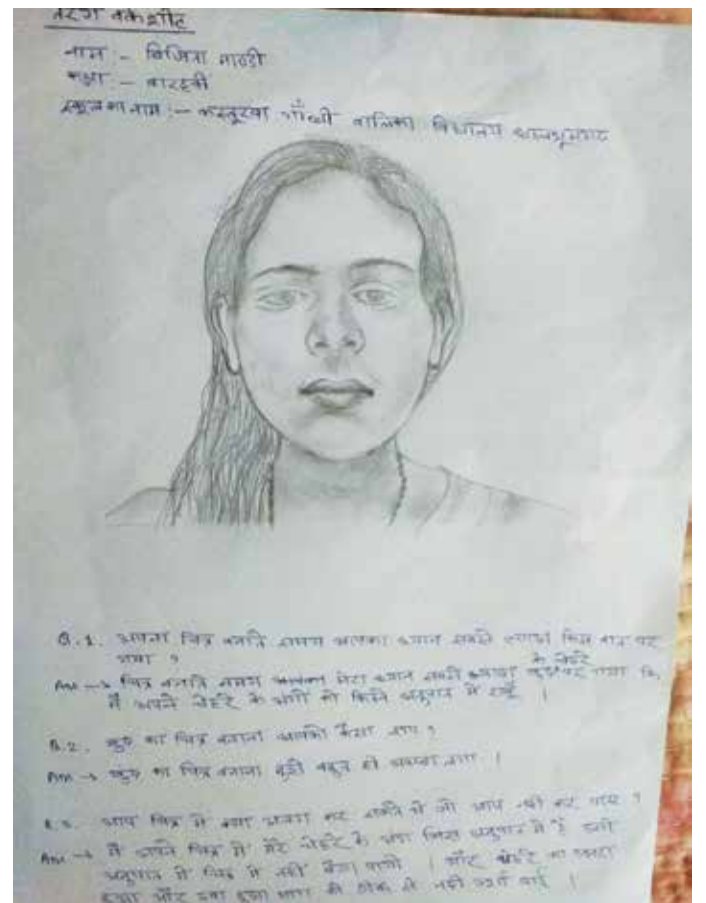 तरंग वर्कशीट
नाम :-
कक्षा - बारहवी
स्कूल का नाम :- कस्तूरबा गाँधी बालिका विद्यालय
Q.1. अपना चित्र बनाते समय आपका ध्यान सबसे ज्यादा किस बात पर
गया ?
के चेहरे
Ans → चित्र बनाते समय मेरा ध्यान सबसे ज्यादा गया कि
मैं अपने चेहरे के अंगों को किस अनुपात में रखूँ ।
Q.2. खुद का चित्र बनाना आपको कैसा लगा ?
Ans → खुद का चित्र बनाना मुझे बहुत ही अच्छा लगा ।
Q.3. आप चित्र में क्या अच्छा कर सकते थे जो आप नही कर पाए ?
Ans → मैं अपने चित्र में मेरे चेहरे के अंग जिस अनुपात में है उसी
अनुपात में चित्र में नही पायी । और चेहरे का उभरा
हुआ और दबा हुआ भाग को ठीक से नही दर्शा पाई ।